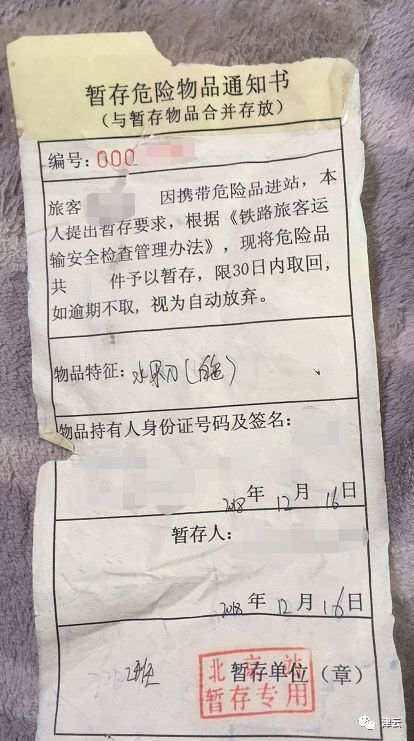 暂存危险物品通知书
（与暂存物品合并存放）
编号：000
旅客 因携带危险品进站，本
人提出暂存要求，根据《铁路旅客运
输安全检查管理办法》，现将危险品
共 件予以暂存，限30日内取回，
如逾期不取，视为自动放弃。
物品特征：水果刀（白色）
物品持有人身份证号码及签名：
2018年12月16日
暂存人：
2018年12月16日
班 北京站 暂存单位（章）
暂存专用
津云